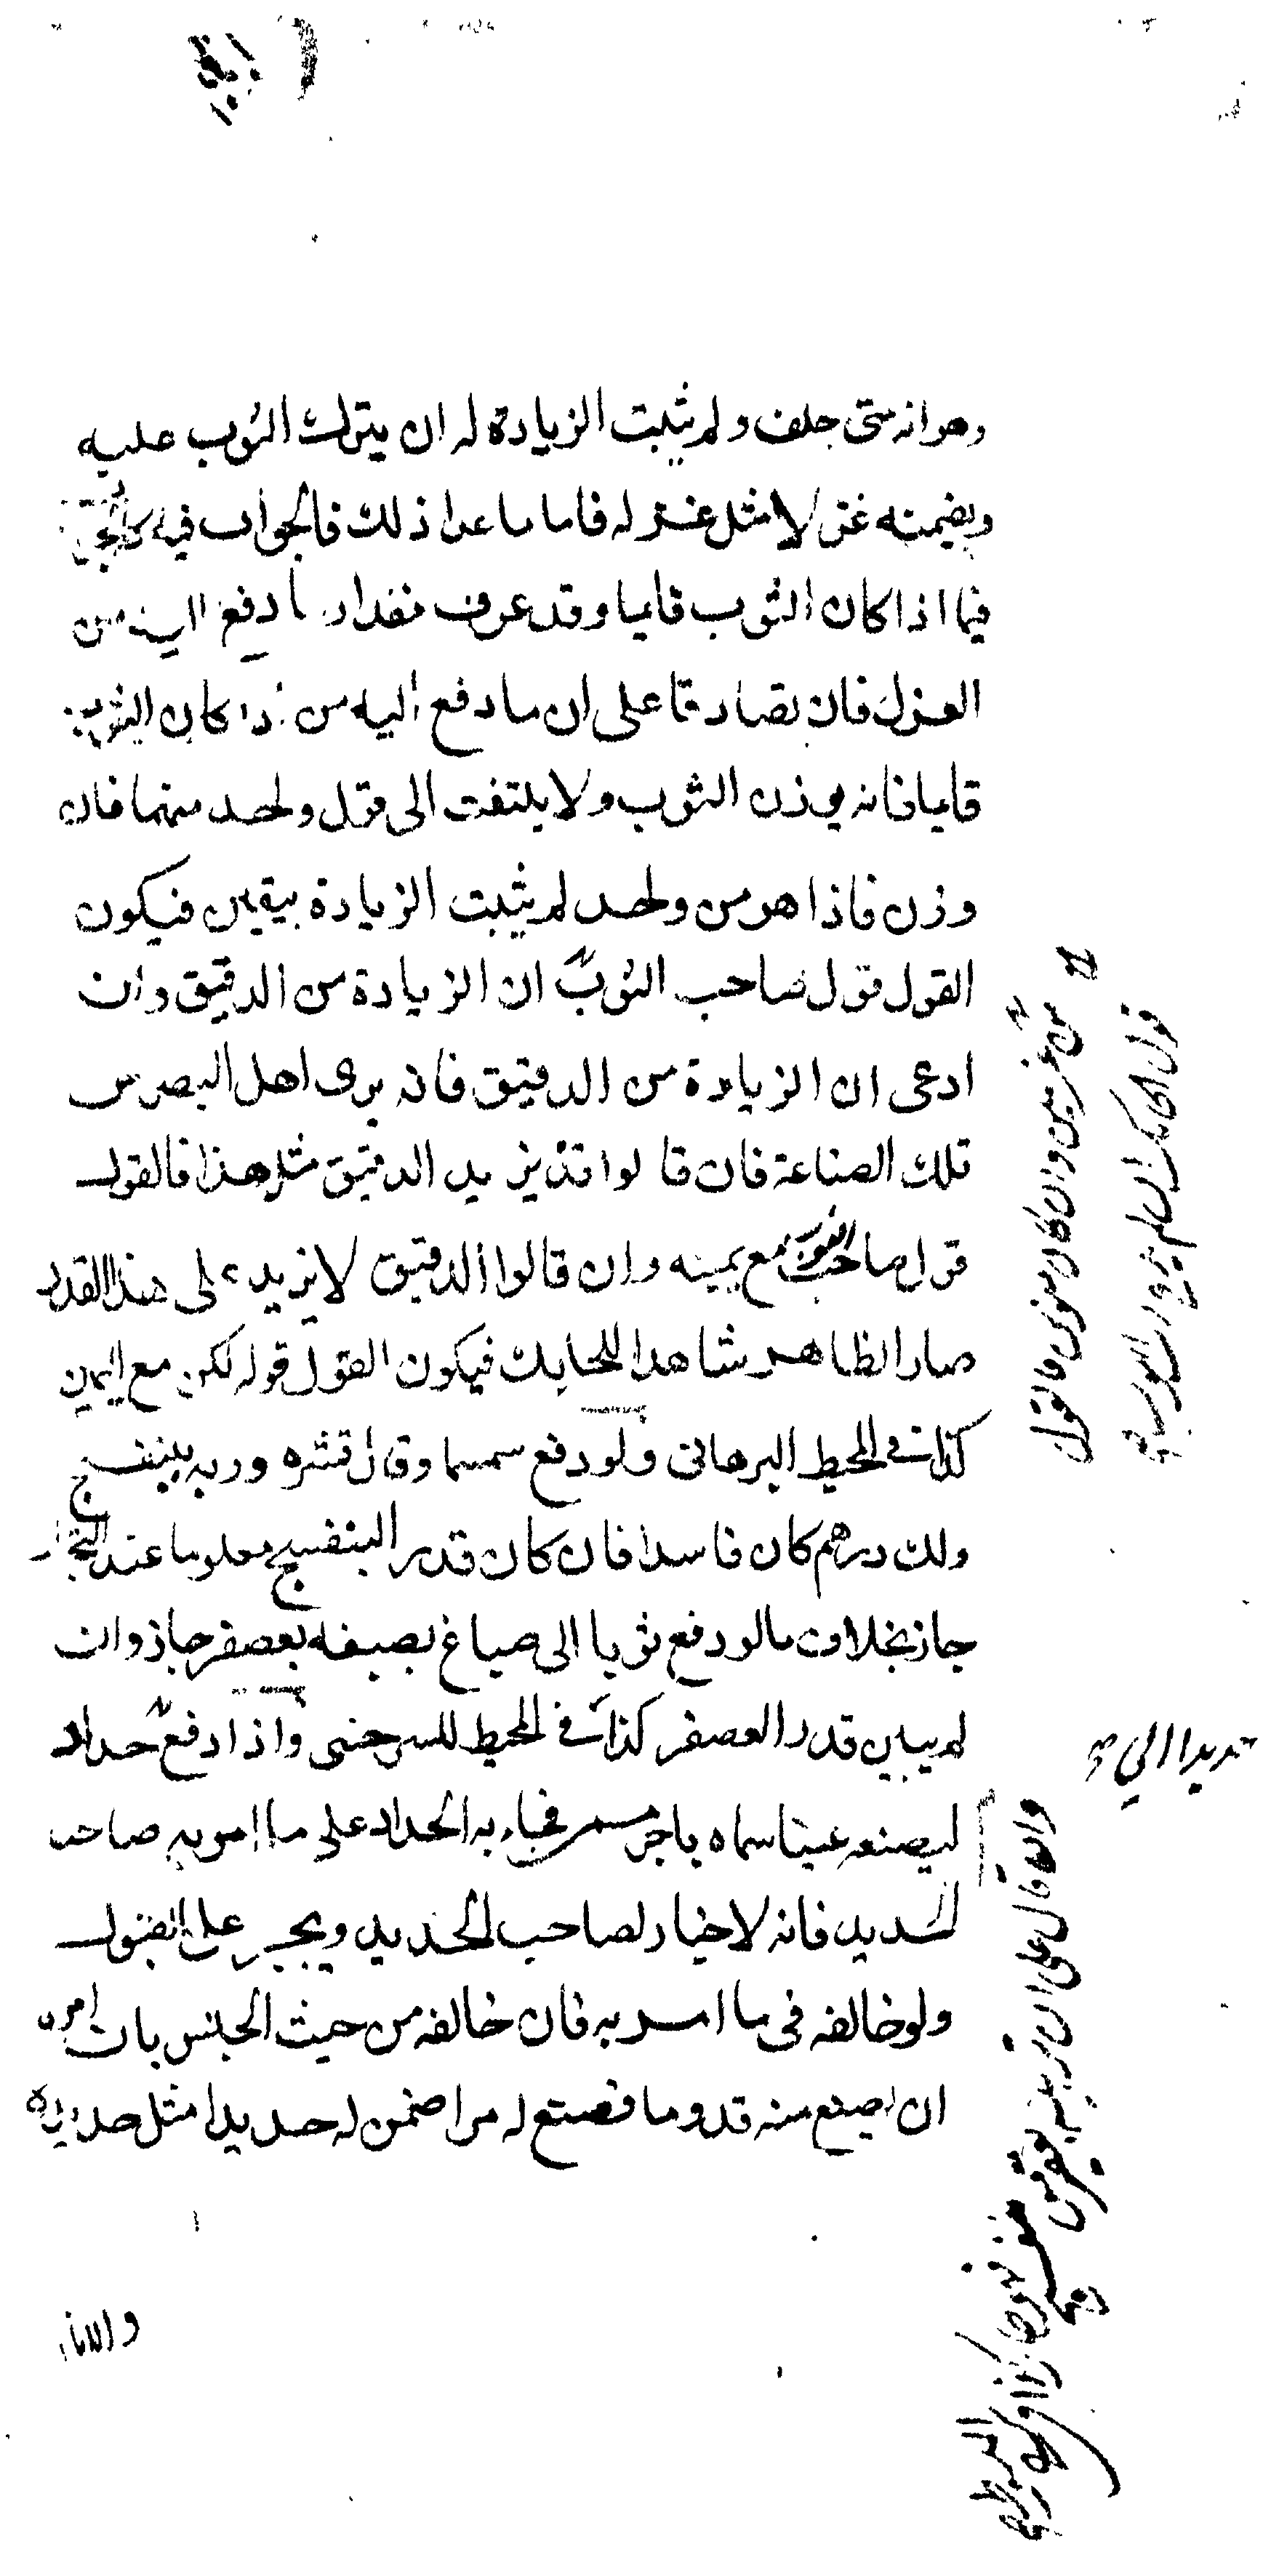 وهو انه متى حلف ولم يثبت الزيادة له ان يترك الثوب عليه
ويضمنه غزلا مثل غزله فاما ما عدا ذلك فالجواب فيه
فيما اذا كان الثوب قايما وقد عرف مقدار ما دفع اليه من
الغزل فان تصادقا على ان ما دفع اليه من اذا كان الثوب
قايما فانه يوزن الثوب ولا يلتفت الى قول واحد منهما فان
وزن فاذا هو من واحد لم يثبت الزيادة بيقين فيكون
القول قول صاحب الثوب ان الزيادة من الدقيق وان
ادعى ان الزيادة من الدقيق فانه يرى اهل البصر من
تلك الصناعة فان قالوا قد يزيد الدقيق مثل هذا فالقول
قول صاحب الثوب مع يمينه وان قالوا الدقيق لا يزيد على هذا القدر
صار الظاهر شاهدا للحايك فيكون القول قوله لكن مع اليمين
كذا في المحيط البرهاني ولو دفع سمسما وقال قشره وربه ببنفسج
ولك درهم كان فاسدا فان كان قدر البنفسج معلوما عند التجار
جاز بخلاف ما لو دفع ثوبا الى صباغ يصبغه بعصفر جاز وان
لم يبين قدر العصفر كذا في المحيط للسرخسي واذا دفع حداد
ليصنعه عينا سماه باجر مسمى فجاء به الحداد على ما امر به صاحب
الحديد فانه لا خيار لصاحب الحديد ويجبر على القبول
ولو خالفه في ما امر به فان خالفه من حيث الجنس بان امره
ان يصنع منه قدوما فصنع له مرا ضمن له حديدا مثل حديده
من غزلين وان كان منوين فالقول
قول الحايك ان لم
حديدا الى
وان قال على ان تربيه بقفيز